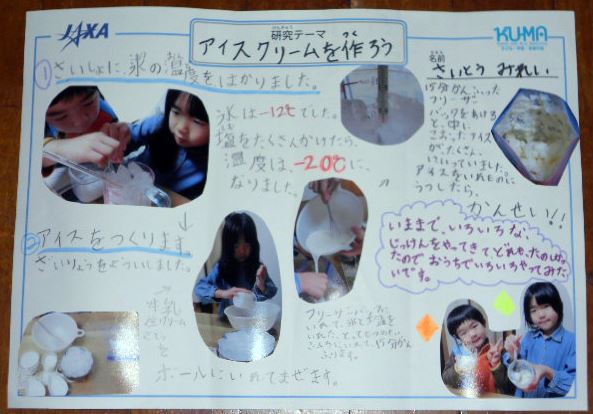 JAXA
けんきゅう
研究テーマ
つく
アイスクリームを作ろう
KU-MA
名前
さいとう みれい
①さいしょに、氷の温度をはかりました。
氷は-1℃でした。
塩をたくさんかけたら、
温度は、-20℃に、
なりました。
②アイスをつくります。
ざいりょうをよういしました。
牛乳
生クリーム
さとう
を
ボールにいれてまぜます。
フリーザーバックに
いれて、氷と塩を
15分かんふった
フリーザー
バックをあける
と、中に
こおったアイス
が、たくさん
はいっていました。
アイスをいれものに
うつしたら、
かんせい!!
いままで、いろいろな、
じっけんをやってきて、どれも、たのしかっ
たので おうちでいろいろやってみた
いです。